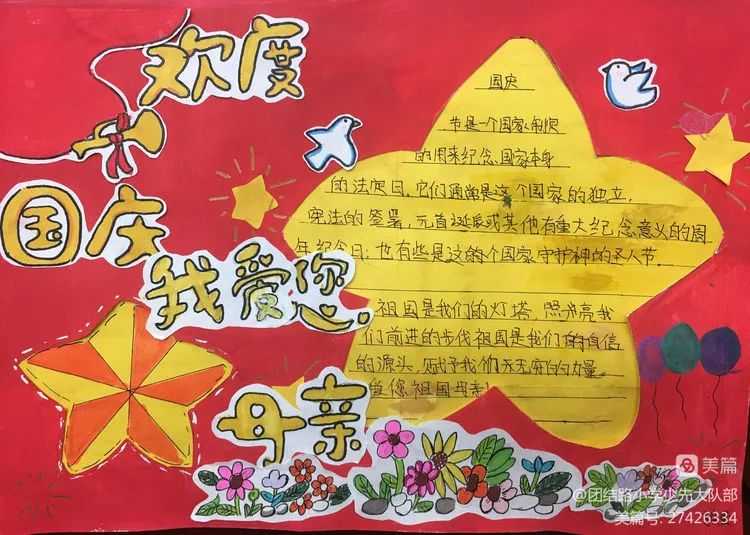 欢度
国庆
我爱您
母亲
国庆
节是一个国家制定
的用来纪念国家本身
的法定日,它们通常是这个国家的独立,
宪法的签署,元首诞辰或其他有重大纪念意义的周
年纪念日;也有些是这的个国家守护神的圣人节.
祖国是我们的灯塔,照亮我
们前进的步伐祖国是我们的自信
的源头,赋予我们无穷的力量。
您祖国母亲!
美篇
@团结路小学少先大队部
美篇号: 27426334